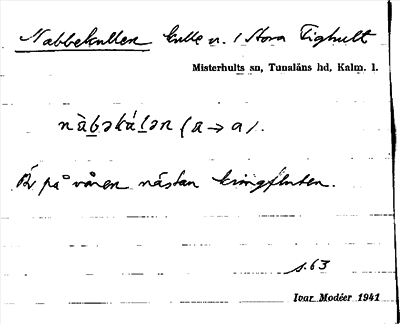 Nabbekullen kulle n. i Stora Fighult
Misterhults sn, Tunaläns hd, Kalm. l.
nàbəkúlən (a → a).
Är på våren nästan kringfluten.
s. 63
Ivar Modéer 1941